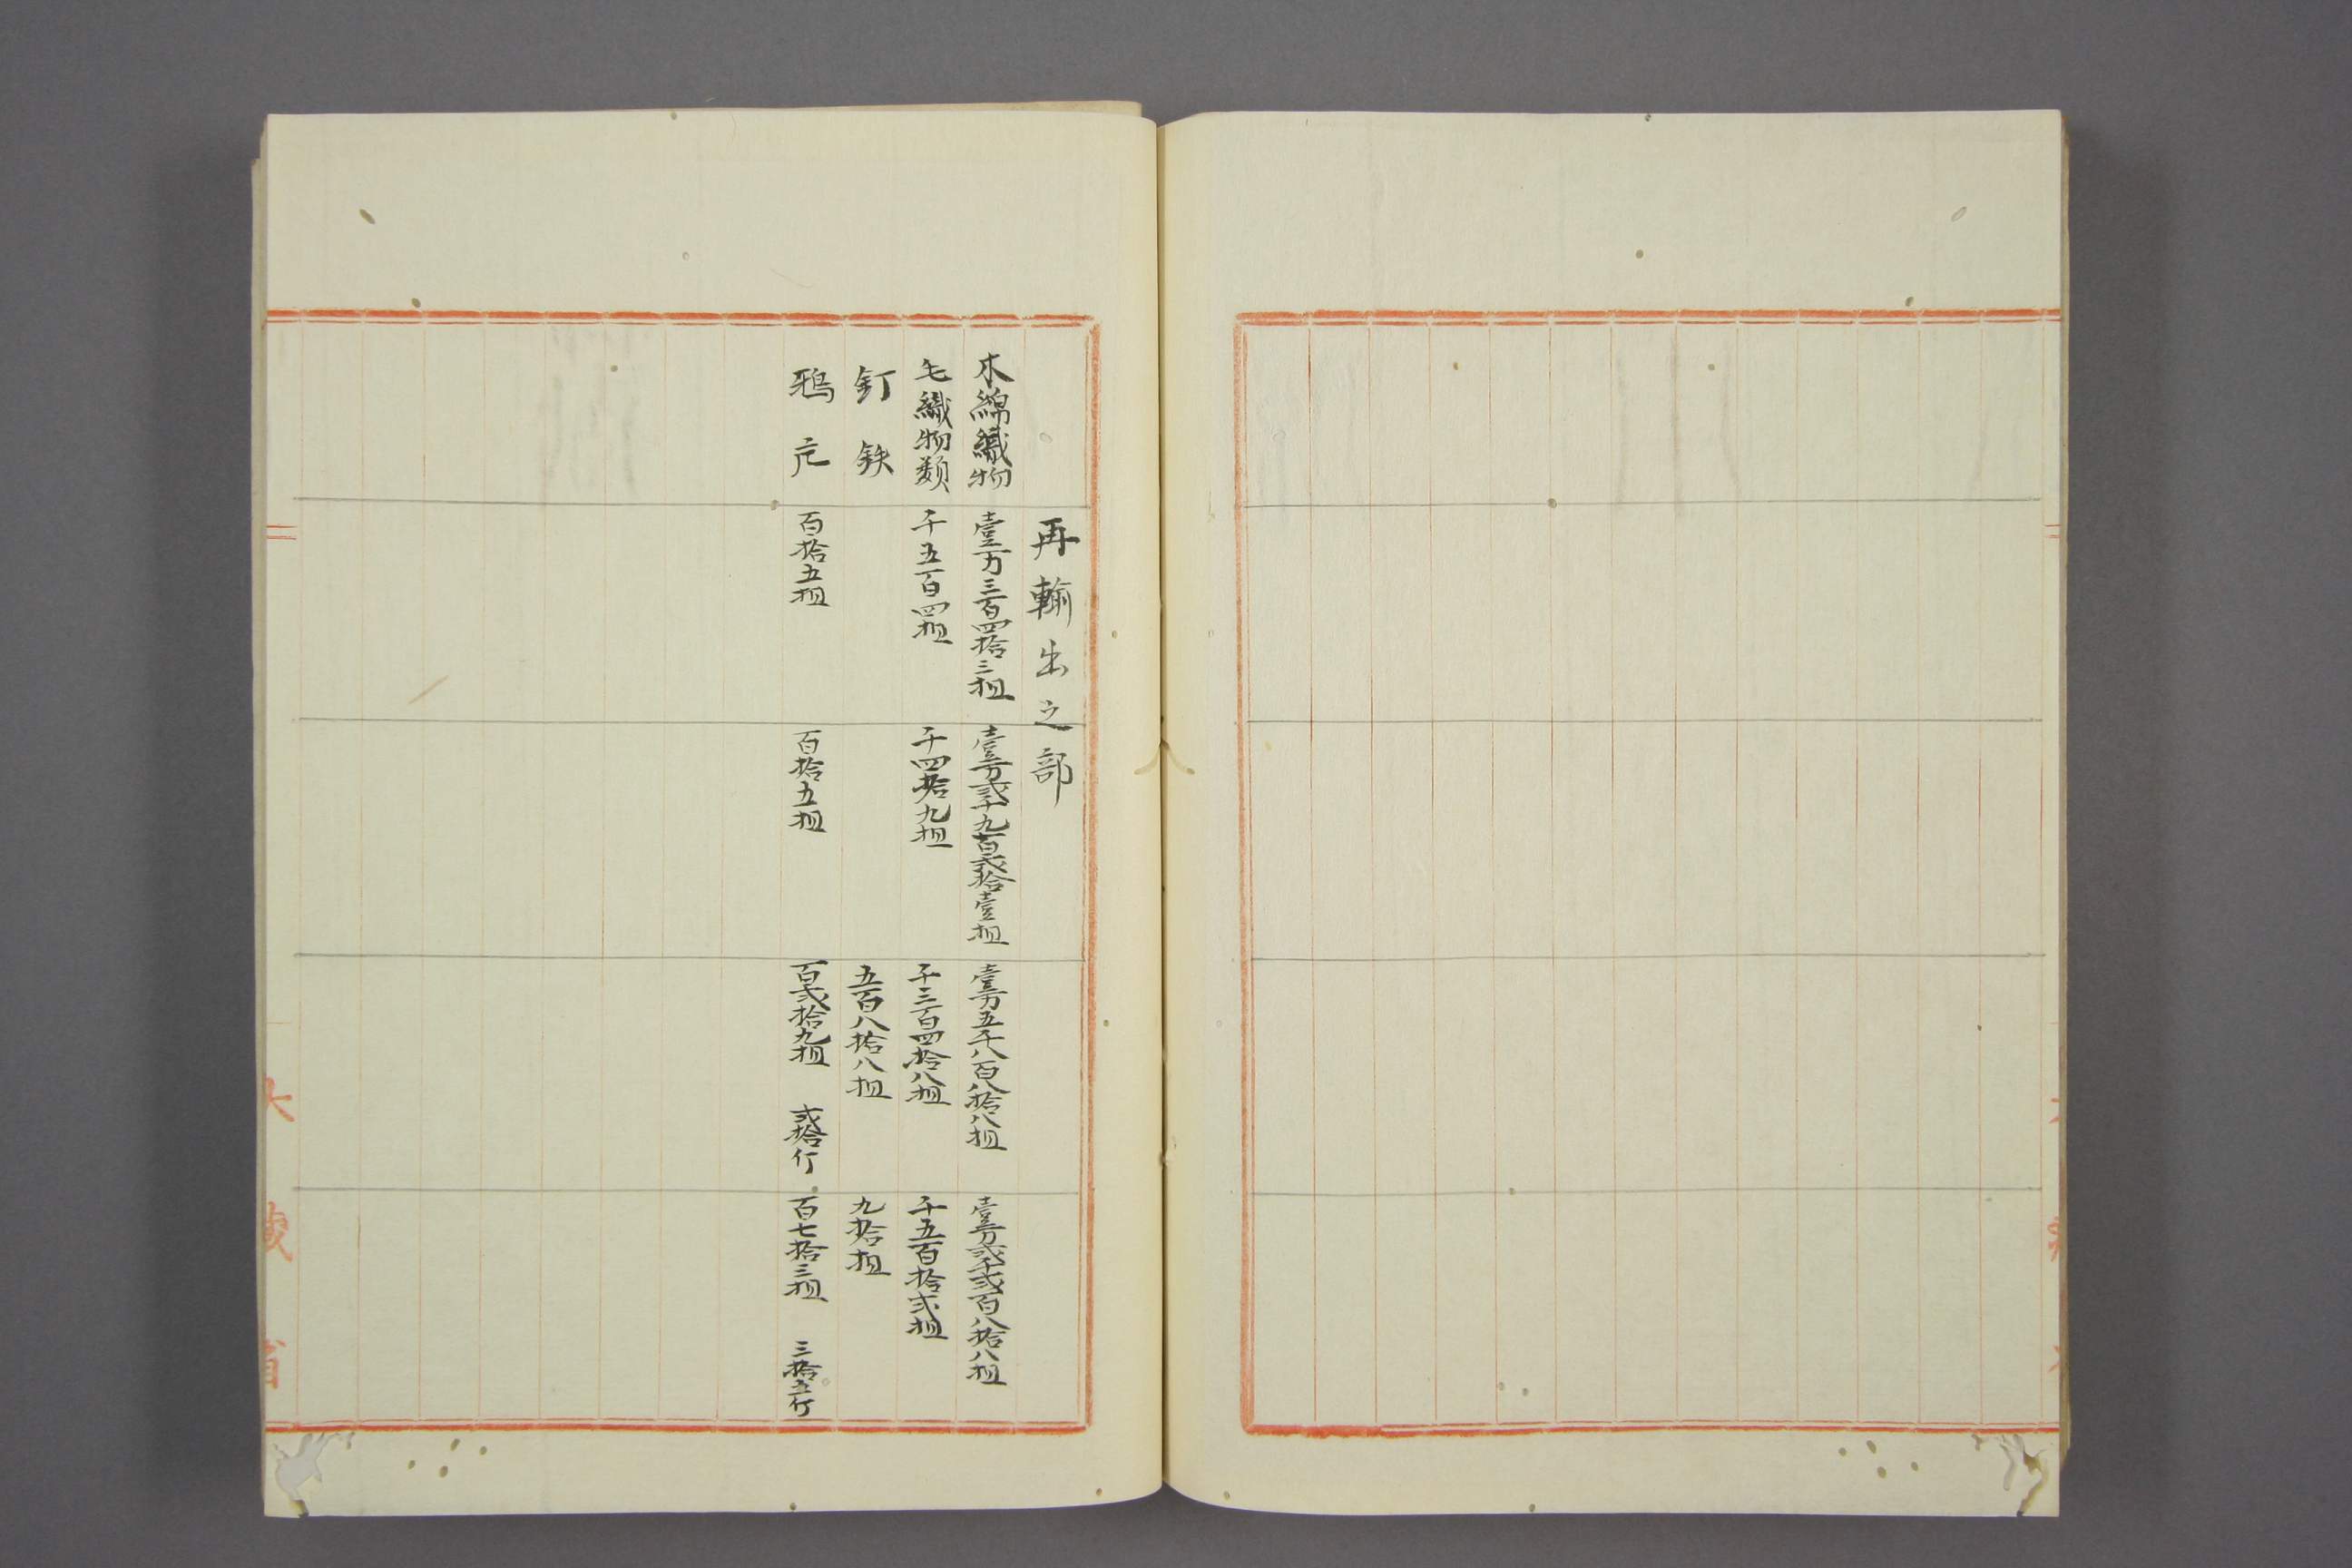 再輸出之部
木綿織物 壹万三百四拾三担 壹万弐千九百弐拾壹担 壹万五千八百八拾八担 壹万弐千弐百八拾八担
毛織物類 千五百四担 千四拾九担 千三百四拾八担 千五百拾弐担
釘鉄 五百八拾八担 九拾担
鴉片 百拾五担 百拾五担 百弐拾九担 弐拾斤 百七拾三担 三拾五斤
大藏省